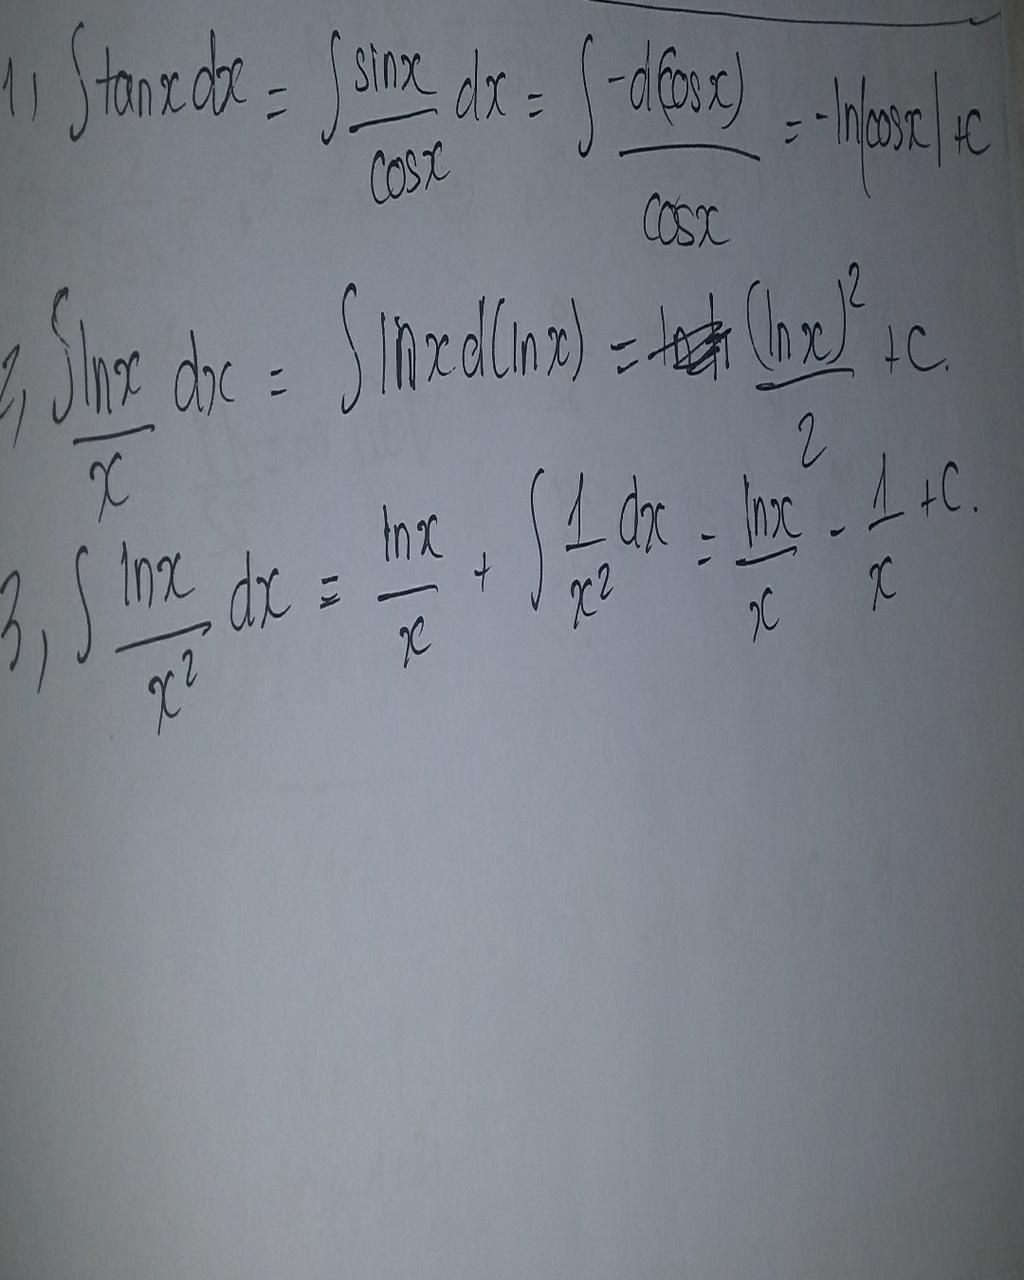 1, ∫tanxdx = ∫ sinx/cosx dx = ∫ -d(cosx)/cosx = -ln|cosx| + C
2, ∫ lnx/x dx = ∫ lnxd(lnx) = (lnx)²/2 + C.
3, ∫ lnx/x² dx = lnx/x + ∫ 1/x² dx = lnx/x - 1/x + C.